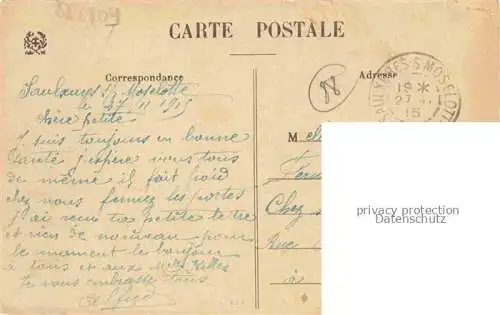 CARTE POSTALE
Correspondance
Adresse
88
SAULXURES-S-MOSELOTTE
19 *
27
15
Saulxures s/ Moselotte
le 27 11 1915
Chère petite
Je suis toujours en bonne
santé j'espère vous tous
de même il fait froid
chez nous fermez les portes
j'ai reçu ta petite lettre
et rien de nouveau pour
le moment le bonjour
à tous et aux
Je vous embrasse tous
M
Chez
Rue
à
privacy protection
Datenschutz